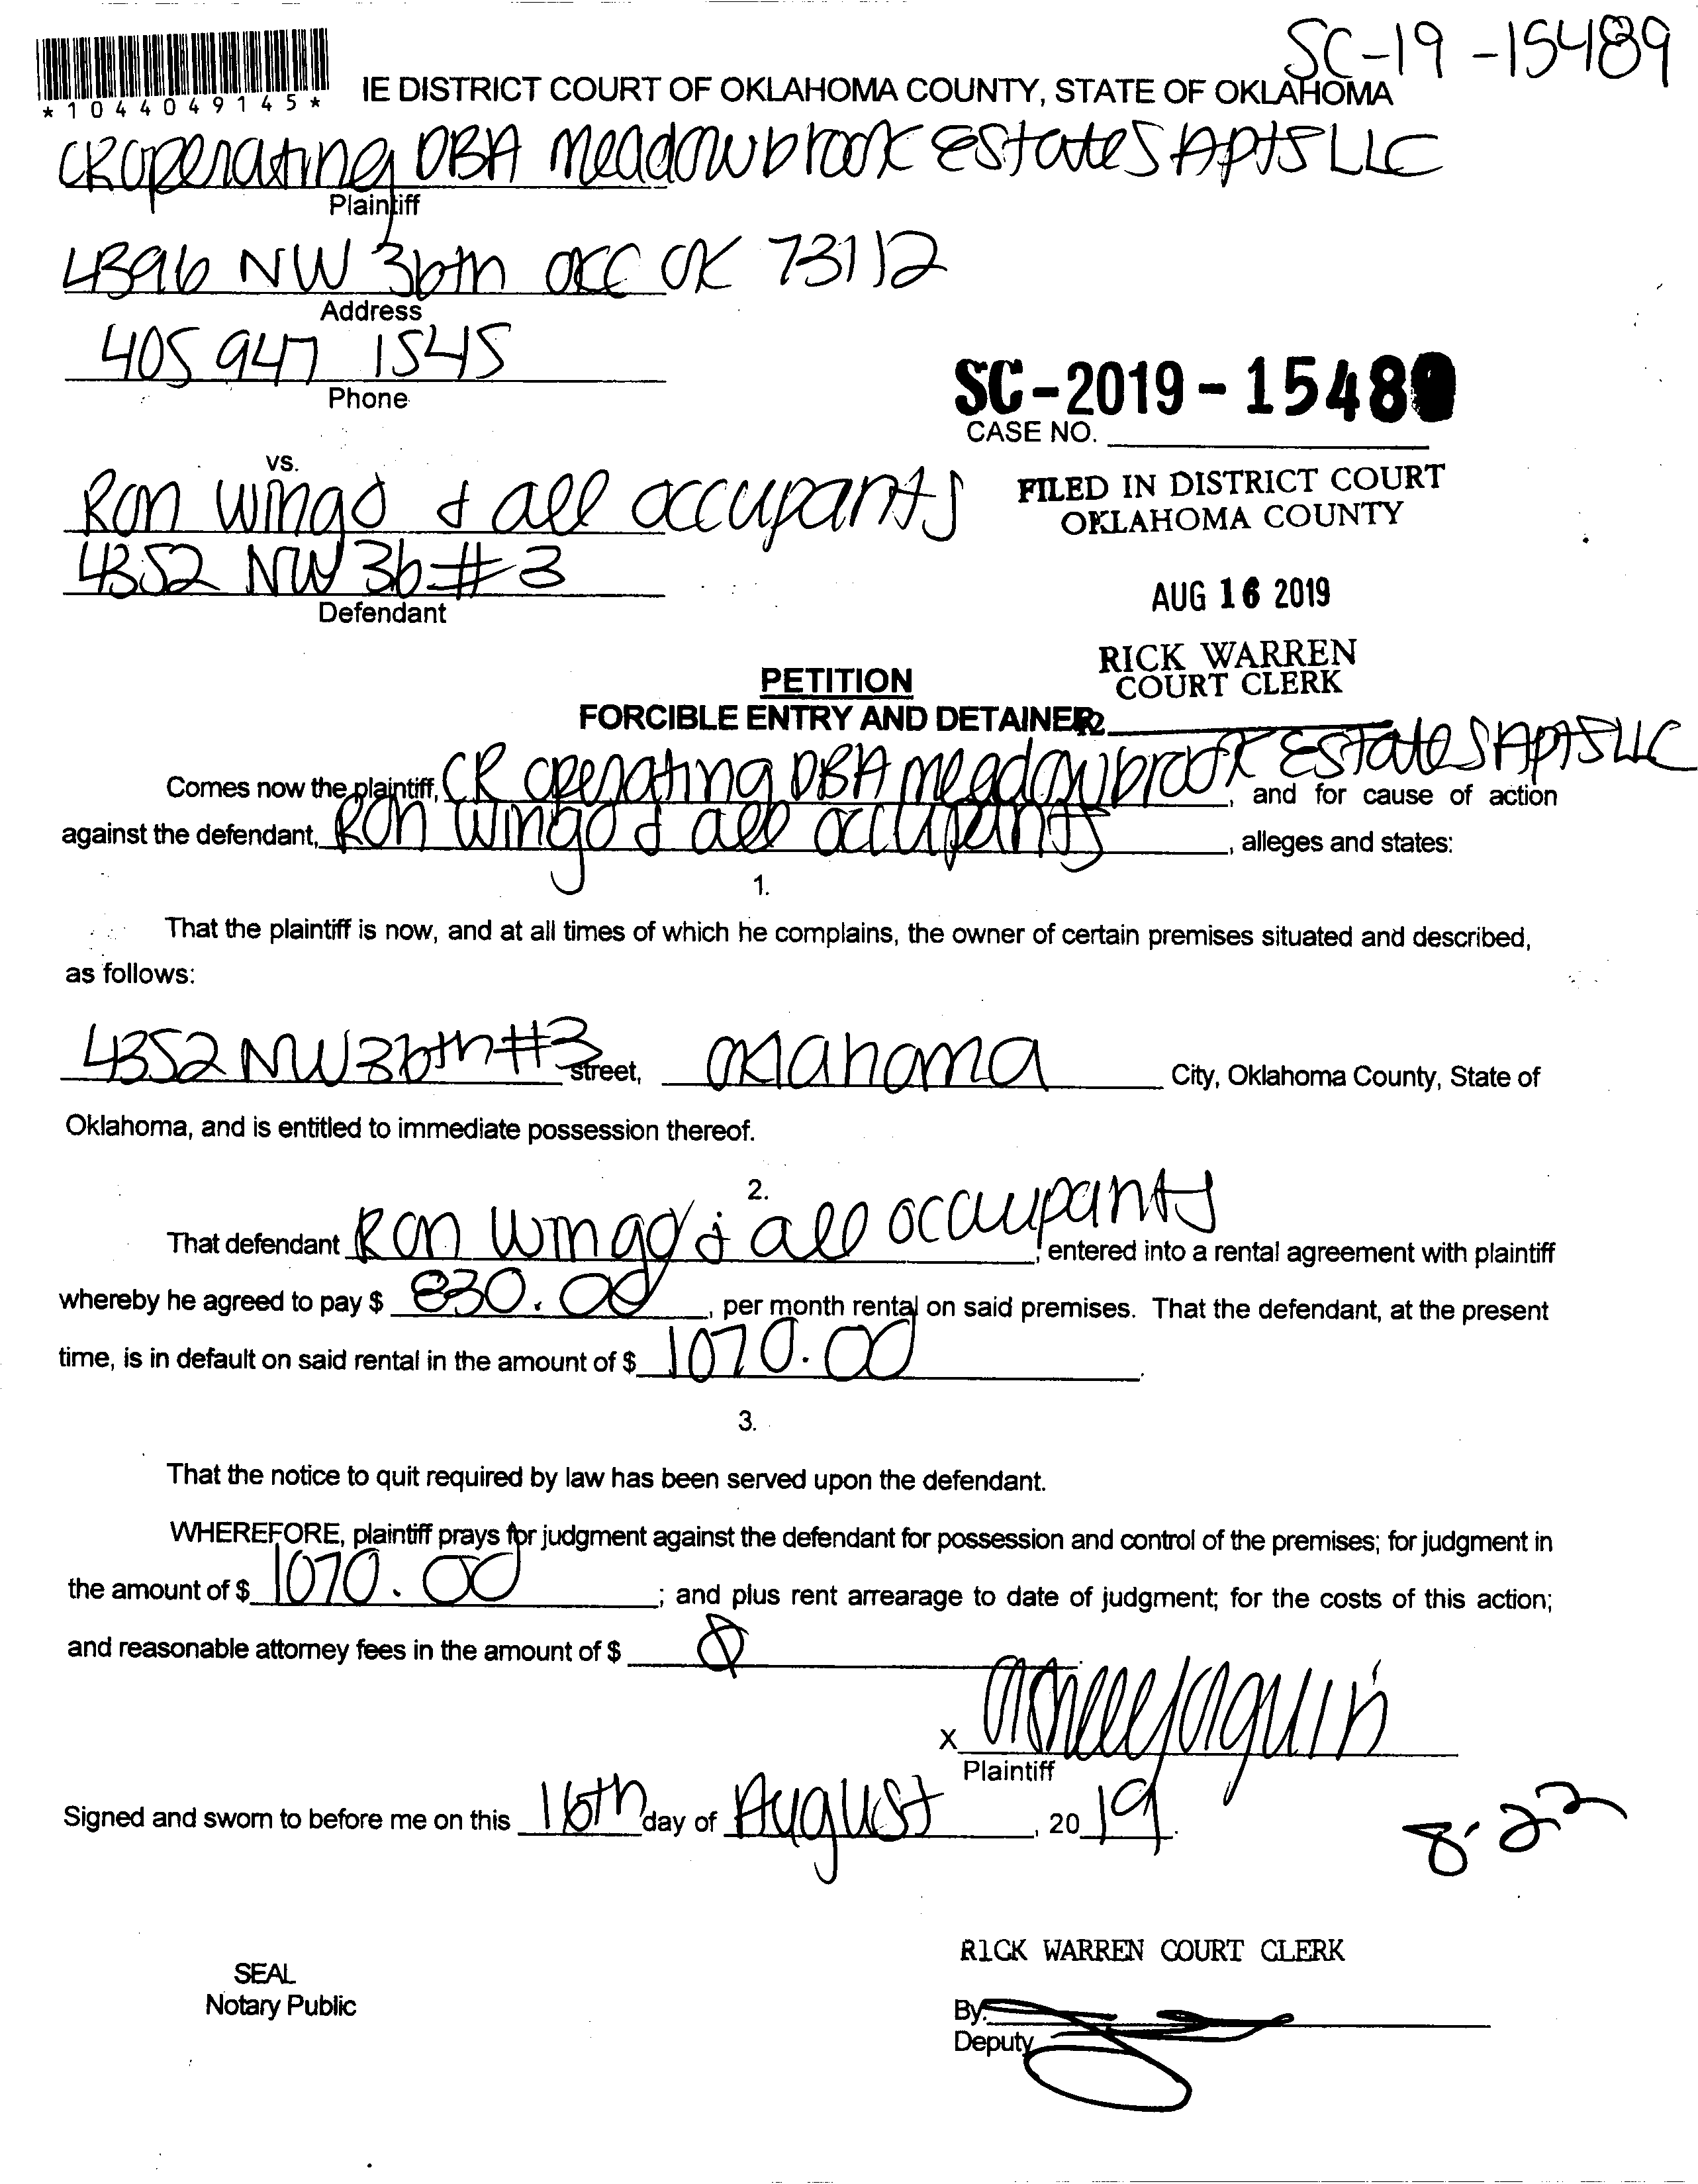 SC-19-15489
*1044049145*
IE DISTRICT COURT OF OKLAHOMA COUNTY, STATE OF OKLAHOMA
CR Operating DBA Meadowbrook Estates Apts LLC
Plaintiff
4396 NW 36th OKC OK 73112
Address
405 947 1545
Phone
SC-2019-15489
CASE NO.
vs.
Ron Wingo & all occupants
4352 NW 36 #3
Defendant
FILED IN DISTRICT COURT
OKLAHOMA COUNTY
AUG 16 2019
RICK WARREN
COURT CLERK
PETITION
FORCIBLE ENTRY AND DETAINER
Comes now the plaintiff, CR Operating DBA Meadowbrook Estates Apts LLC, and for cause of action
against the defendant, Ron Wingo & all occupants, alleges and states:
1.
That the plaintiff is now, and at all times of which he complains, the owner of certain premises situated and described,
as follows:
4352 NW 36th #3 street, Oklahoma City, Oklahoma County, State of
Oklahoma, and is entitled to immediate possession thereof.
2.
That defendant Ron Wingo & all occuupants, entered into a rental agreement with plaintiff
whereby he agreed to pay $ 830.00, per month rental on said premises. That the defendant, at the present
time, is in default on said rental in the amount of $ 1070.00.
3.
That the notice to quit required by law has been served upon the defendant.
WHEREFORE, plaintiff prays for judgment against the defendant for possession and control of the premises; for judgment in
the amount of $ 1070.00; and plus rent arrearage to date of judgment; for the costs of this action;
and reasonable attorney fees in the amount of $ 0
X
Plaintiff
Signed and sworn to before me on this 16th day of August, 2019.
8-22
RICK WARREN COURT CLERK
SEAL
Notary Public
By:
Deputy